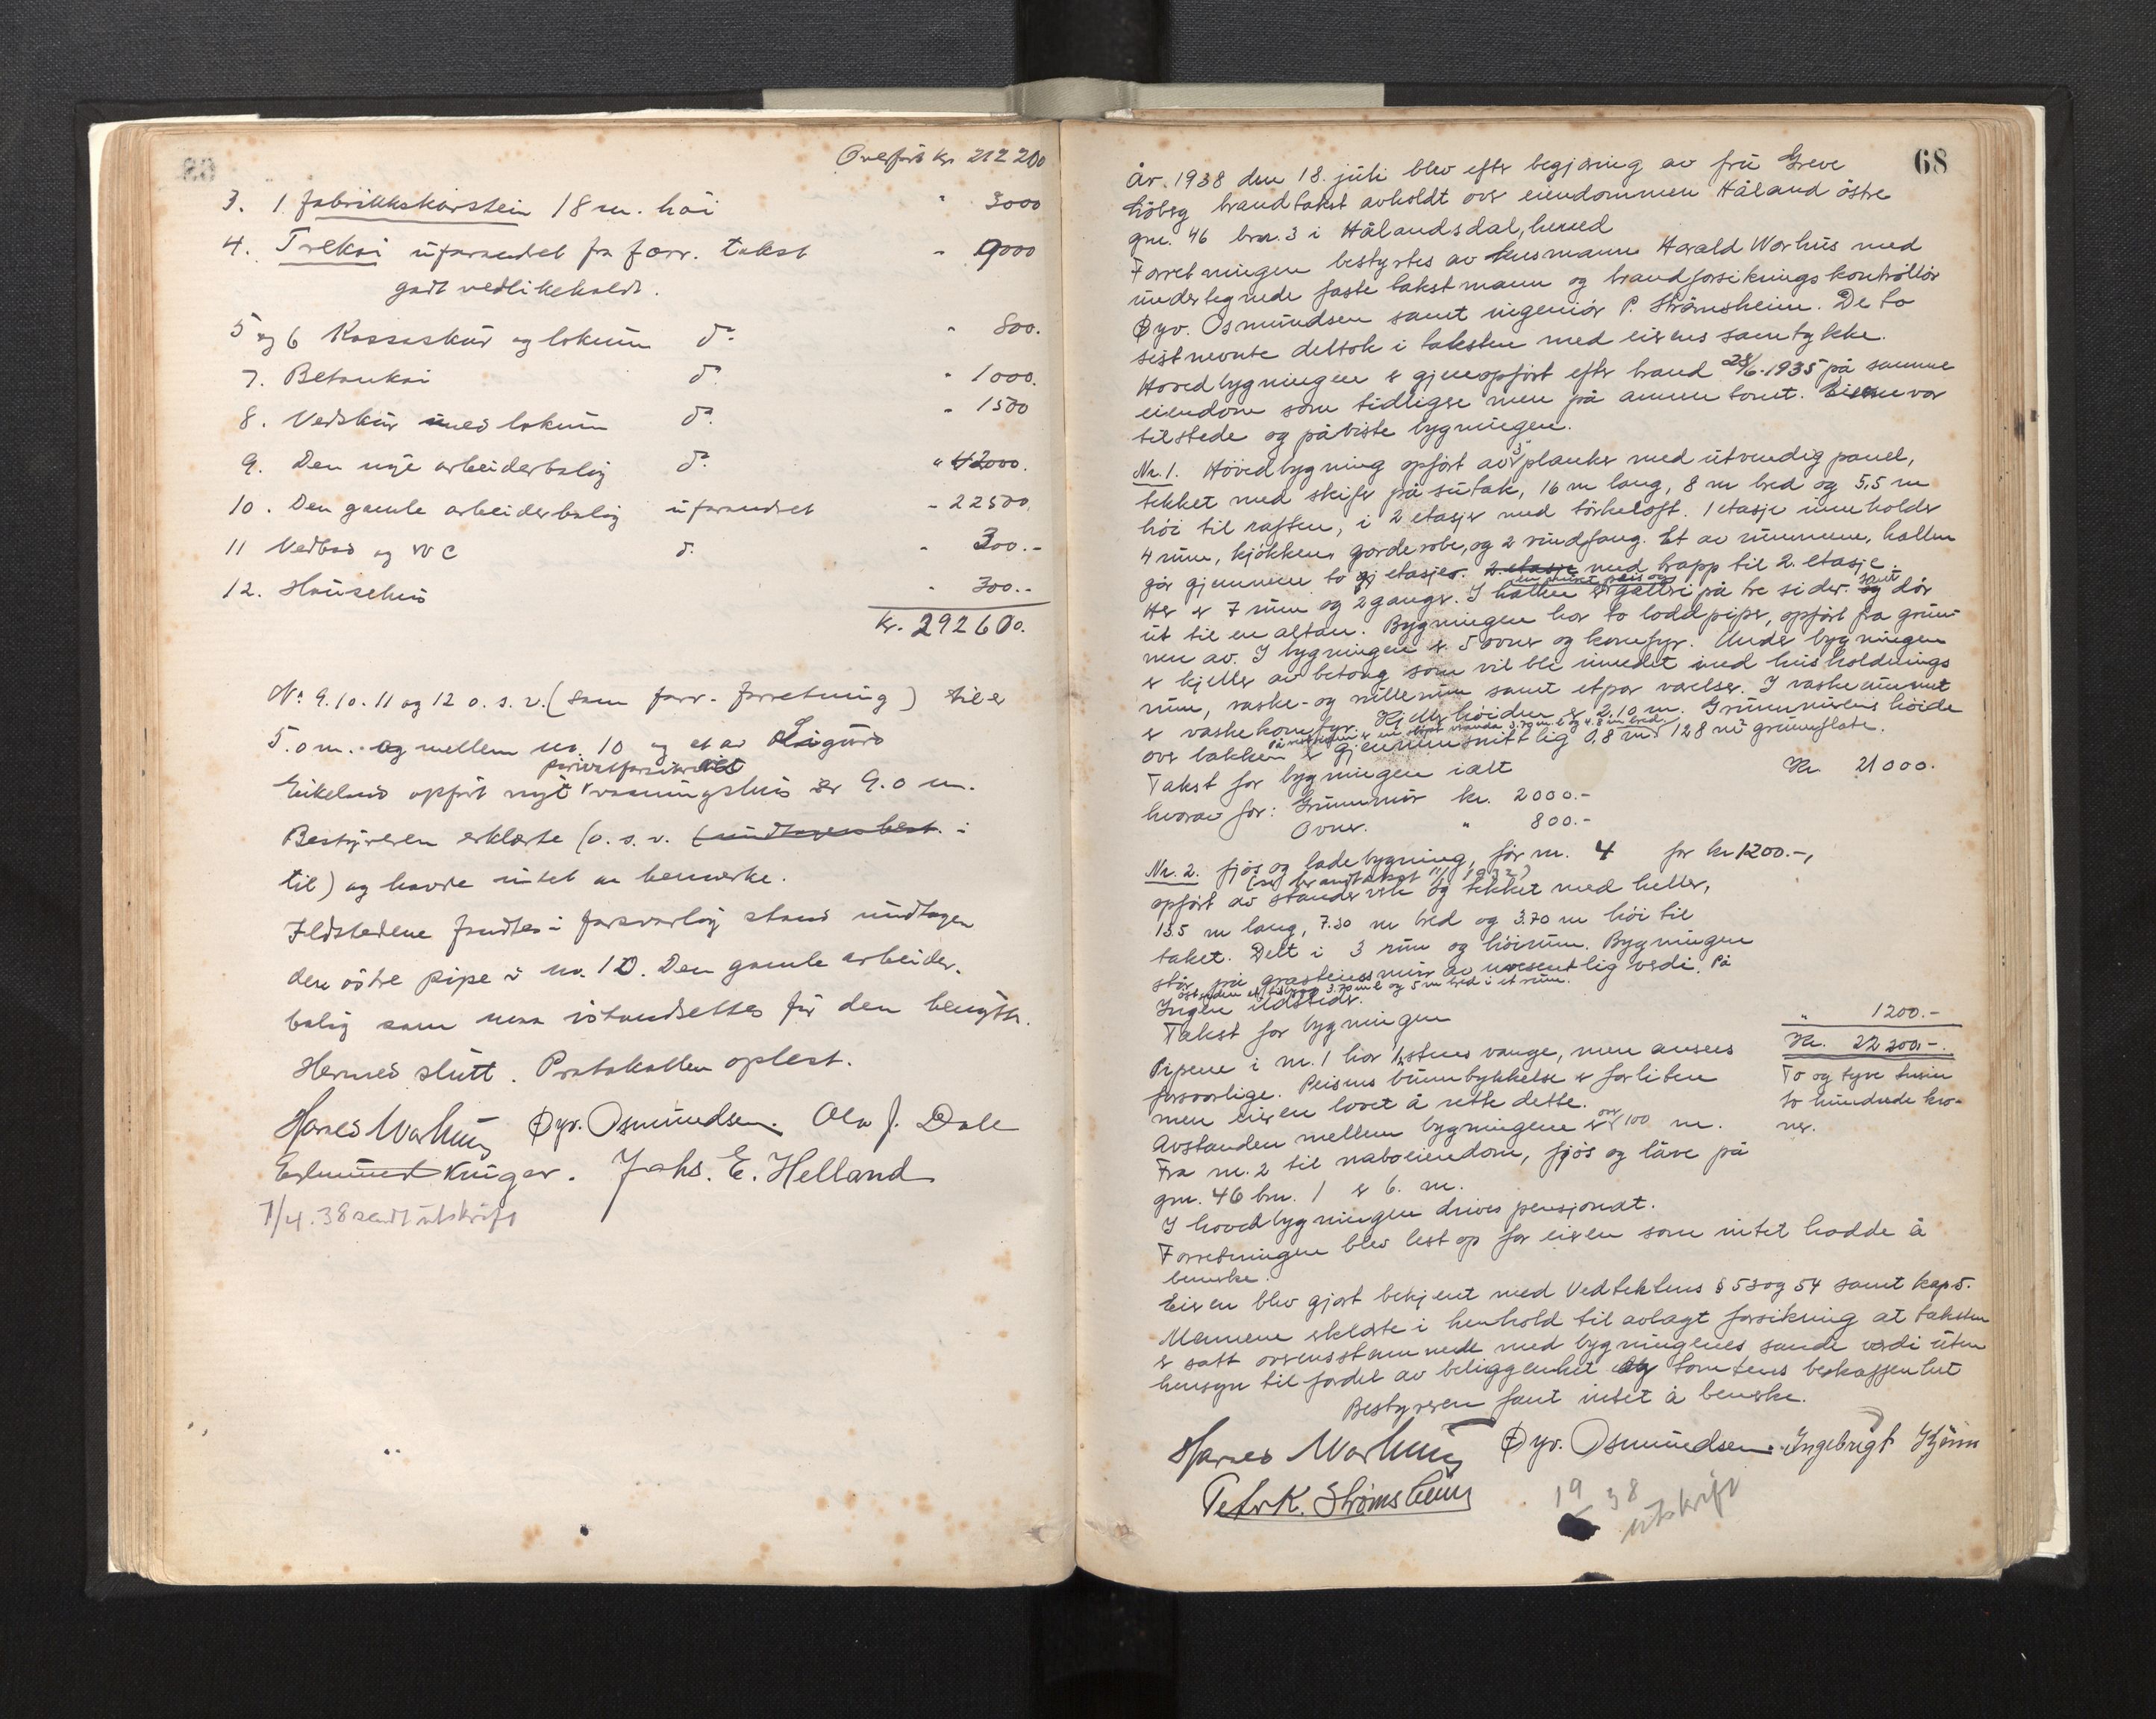 Overført kr. 212 200
3. 1 fabrikkskorstein 18 m. høi " 3000
4. Trekai uforandret fra forr. takst - 9000
godt vedlikeholdt.
5 og 6 Kassaskur og lokum do. " 800.
7. Betonkai do " 1000.
8. Vedskur med lokum do. " 1500
9. Den nye arbeiderbolig do. " 42000.
10. Den gamle arbeiderbolig uforandret - 22500.
11 Vedbod og WC do. - 300.-
12. Hønsehus - 300.-
Kr. 292600.
No. 9. 10. 11 og 12 o. s. v. (som forr. forretning) til
5.0 m. og mellem nr. 10 og et av Sigurd
privatforsikret
Eikeland opført nyt våningshus er 9.0 m.
Bestyreren erklærte (o. s. v. i
til) og havde intet at bemerke.
Ildstedene fandtes i forsvarlig stand undtagen
den østre pipe i nr. 10. Den gamle arbeider-
bolig som maa istandsettes før den benyttes.
Hermed slutt. Protokollen oplest.
Harald Warhus Øyv. Osmundsen. Ola J. Dale
Edmund Krüger. Johs. E. Helland
7/4. 38 sendt utskrift
68
År. 1938 den 18. juli blev efter begjæring av fru Greve
Høberg brandtakst avholdt over eiendommen Håland østre
gnr. 46 bnr. 3 i Hålandsdal, herred
Forretningen bestyrtes av lensmann Harald Warhus med
undertegnede faste takstmann og brandforsikringskontrollør
Øyv. Osmundsen samt ingeniør P. Strømsheim. De to
sistnevnte deltok i taksten med eierens samtykke.
Hovedbygningen er gjenopført efter brand 28/6-1935 på samme
eiendom som tidligere men på annen tomt. Eieren var
tilstede og påviste bygningen.
Nr. 1. Hovedbygning opført av 3" planker med utvendig panel,
tekket med skifer på sutak, 16 m lang, 8 m bred og 5,5 m
høi til raften, i 2 etasjer med tørkeloft. 1 etasje inneholder
4 rum, kjøkken, garderobe, og 2 vindfang. Et av rummene, hallen
går gjennem to etasjer. 2. etasje med trapp til 2. etasje.
en muret peis og samt
Her er 7 rum og 2 ganger. I hallen er galleri på tre sider og dør
ut til en altan. Bygningen har to loddpiper, opført fra grun-
nen av. I bygningen er 5 ovner og komfyr. Under bygningen
er kjeller av betong som vil bli innredet med husholdnings
rum, vaske- og rullerum samt et par værelser. I vaskerummet
er vaskekomfyr. Kjellerhøiden er 2.10 m. Grunnmurens høide
over bakken er gjennemsnittlig 0,8 m 128 m² grunnflate.
Takst for bygningen ialt Kr. 21000.
hvorav for: Grunnmur kr. 2000.-
Ovner. " 800.-
Nr. 2. fjøs og ladebygning, før nr. 4 for kr 1200.-,
(se brandtakst 11/ 1932)
opført av stenderverk og tekket med heller,
13.5 m lang, 7.30 m bred og 3.70 m høi til
taket. Delt i 3 rum og høirum. Bygningen
står på gråsteinsmur av uvesentlig verdi. På
østenden et tilbygg 3.70 m l og 5 m bred i et rum.
Ingen ildsteder.
Takst for bygningen " 1200.-
Kr. 22200.-.
Pipene i nr. 1 har 1/2 stens vange, men ansees To og tyve tusin
forsvarlige. Peisens bunntykkelse er for liten to hundrede kro-
men eieren lovet å rette dette. ner.
Avstanden mellem bygningene er over 100 m.
Fra nr. 2 til naboeiendom, fjøs og låve på
gnr. 46 bnr. 1 er 6. m.
I hovedbygningen drives pensjonat.
Forretningen blev lest op for eieren som intet hadde å
bemerke.
Eieren blev gjort bekjent med Vedtektens § 53 og 54 samt kap. 5.
Mennene erklærte i henhold til avlagt forsikring at taksten
er satt overensstemmende med bygningenes sande verdi uten
hensyn til fordel av beliggenhet og tomtens beskaffenhet
Bestyreren fant intet å bemerke.
Harald Warhus Øyv. Osmundsen. Ingebrigt
Petr K. Strømsheim
19 38
utskrift